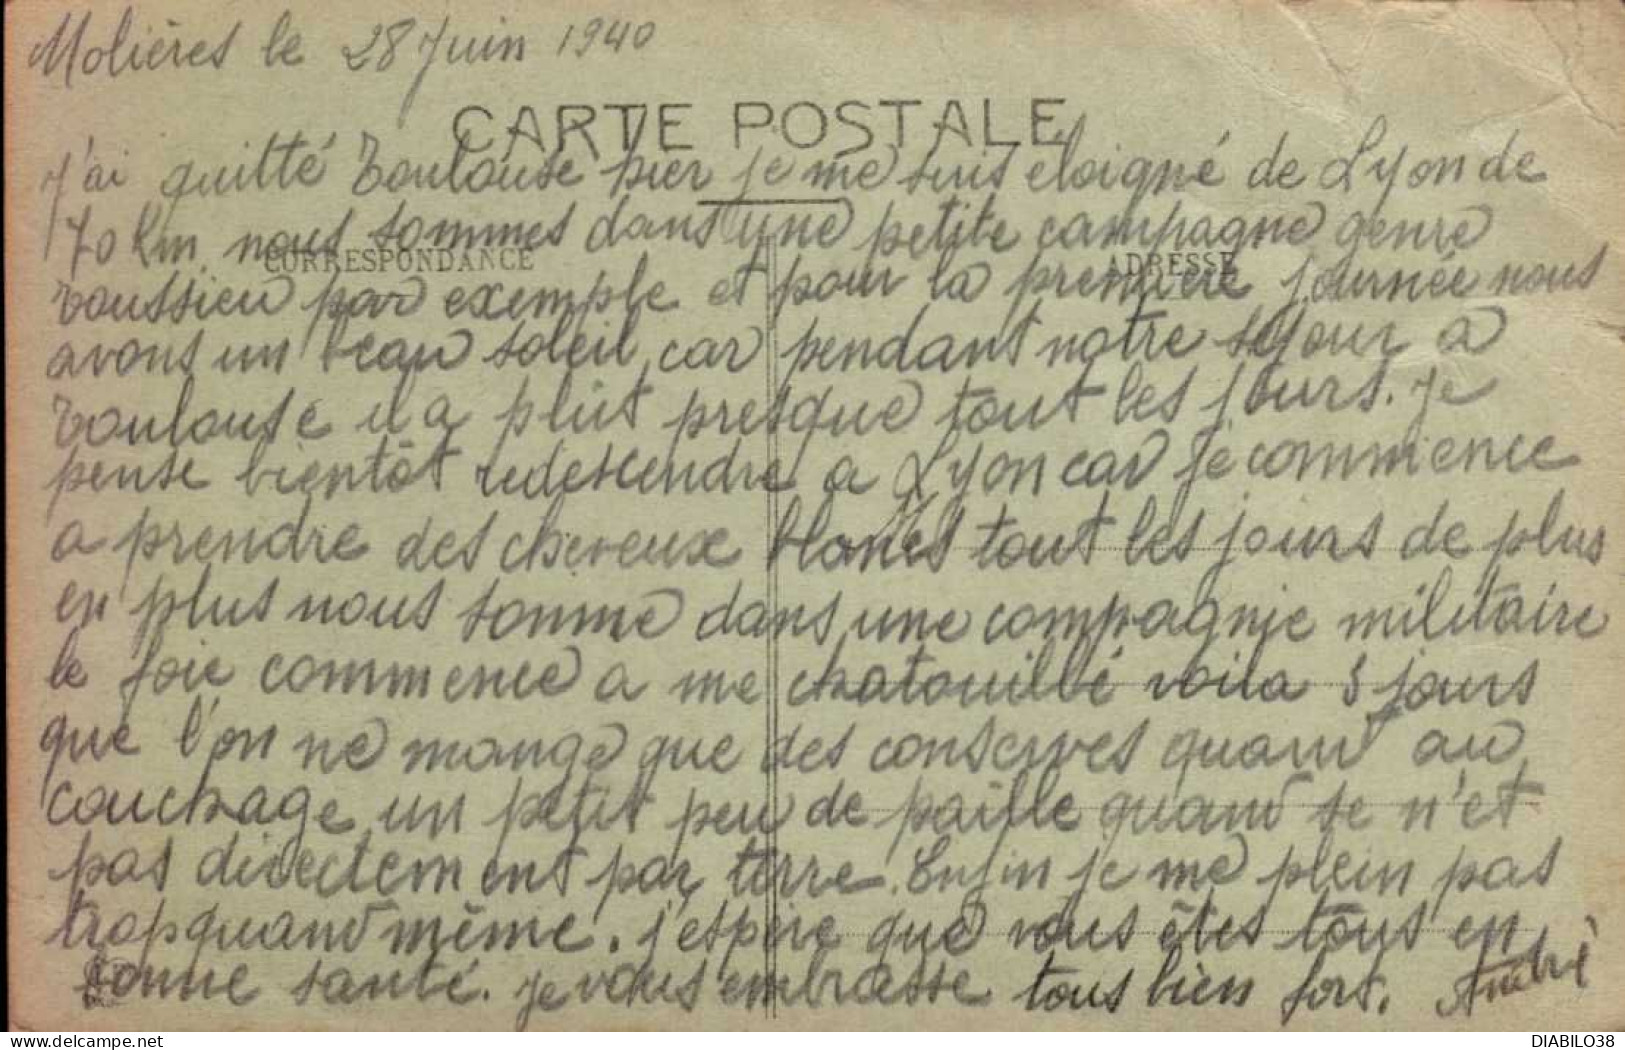 Molières le 28 Juin 1940
CARTE POSTALE
J'ai quitté Toulouse hier je me suis eloigné de Lyon de
70 km. nous sommes dans une petite campagne genre
CORRESPONDANCE
ADRESSE
Toussieu par exemple et pour la premiere journée nous
avons un beau soleil, car pendant notre sejour a
Toulouse il a plut presque tout les jours. Je
pense bientôt redescendre a Lyon car je commence
a prendre des cheveux blancs tout les jours de plus
en plus nous somme dans une compagnie militaire
le foie commence a me chatouillé voila 8 jours
que l'on ne mange que des conserves quant au
couchage un petit peu de paille quand se n'et
pas directement par terre. Enfin je me plein pas
trop quand même. j'espère que vous êtes tous en
bonne santé. Je vous embrasse tous bien fort. André
DIABILO38